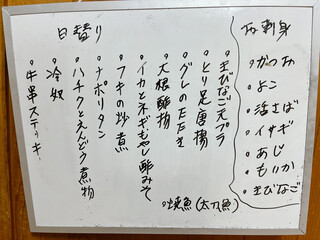 お刺身
・かつお
・よこ
・活さば
・イサギ
・あじ
・もいか
・きびなご
日替り
・きびなご天プラ
・とり足唐揚
・グレのたたき
・大根酢物
・イカとネギもやし酢みそ
・フキの炒煮
・ナポリタン
・ハチクとえんどう煮物
・冷奴
・牛串ステーキ
・焼魚(太刀魚)